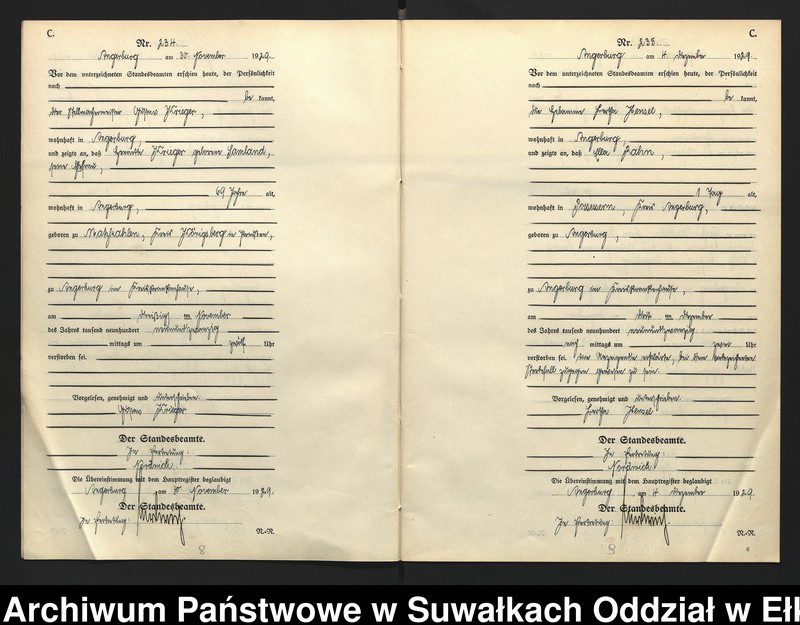 C.
Nr. 234.
Angerburg am 30. November 1929.
Vor dem unterzeichneten Standesbeamten erschien heute, der Persönlichkeit
nach
be kannt,
der Stellmachermeister Gustav Krieger,
wohnhaft in Angerburg,
und zeigte an, daß Krieger geborene Samland,
seine Ehefrau,
69 Jahre alt,
wohnhaft in Angerburg,
geboren zu Kreis Königsberg in Preußen,
zu Angerburg im Kreiskrankenhause,
am dreißigsten November
des Jahres tausend neunhundert neunundzwanzig
mittags um zwölf Uhr
verstorben sei.
Vorgelesen, genehmigt und unterschrieben.
Gustav Krieger
Der Standesbeamte.
In Vertretung:
Die Übereinstimmung mit dem Hauptregister beglaubigt
Angerburg, am 30. November 1929.
Der Standesbeamte.
In Vertretung:
N.-R.
8
C.
Nr. 235.
Angerburg am 4. Dezember 1929.
Vor dem unterzeichneten Standesbeamten erschien heute, der Persönlichkeit
nach
be kannt,
die Hebamme Hertha Hensel,
wohnhaft in Angerburg,
und zeigte an, daß Ella Hahn,
1 Tag alt,
wohnhaft in Kreis Angerburg,
geboren zu Angerburg,
zu Angerburg im Kreiskrankenhause,
am Dezember
des Jahres tausend neunhundert neunundzwanzig
nach mittags um zwei Uhr
verstorben sei. Die Anzeigende erklärte, bei dem
Sterbefall zugegen gewesen zu sein.
Vorgelesen, genehmigt und unterschrieben.
Hertha Hensel
Der Standesbeamte.
In Vertretung:
Die Übereinstimmung mit dem Hauptregister beglaubigt
Angerburg, am 4. Dezember 1929.
Der Standesbeamte.
In Vertretung:
N.-R.
6
Archiwum Państwowe w Suwałkach Oddział w Ełk